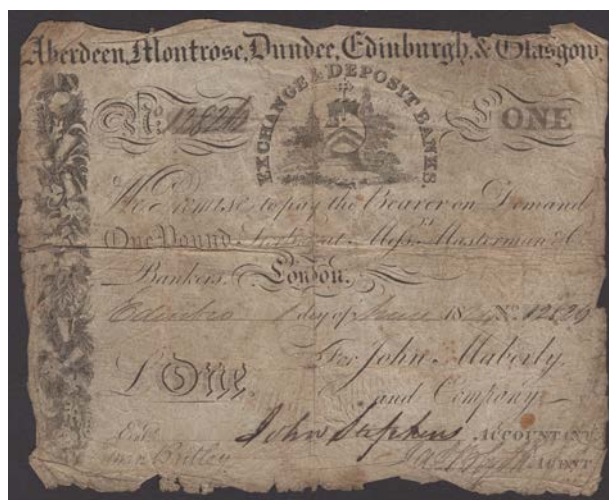 Aberdeen, Montrose, Dundee, Edinburgh, & Glasgow.
EXCHANGE & DEPOSIT BANKS.
No. 12826 £ ONE
We Promise to pay the Bearer on Demand
One Pound Sterling at Messrs. Masterman & Co.
Bankers, London.
Edinbro 1 day of June 18 No. 12826
For John Maberly
£ One and Company
John Stephens ACCOUNTANT
Entd. AGENT